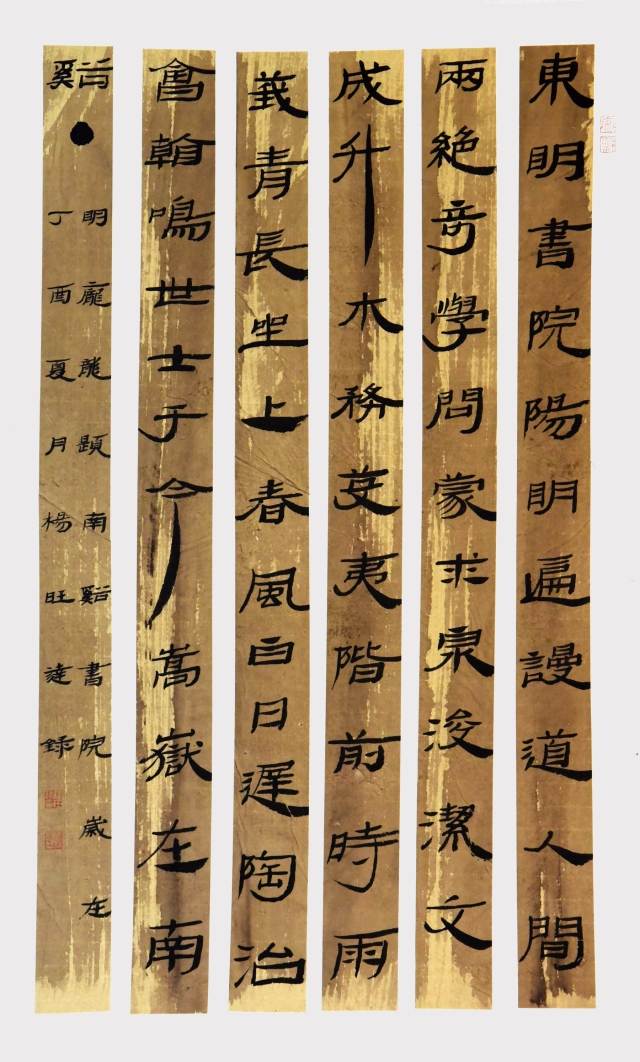 東明書院陽明遍謾道人間
兩絕奇學問蒙求泉浚潔文
成升木務芟夷階前時雨
莪青長坐上春風白日遲陶治
會翰鳴世士于今嵩嶽在南
谿
明龐龍題南谿書院歲在
丁酉夏月楊旺達錄